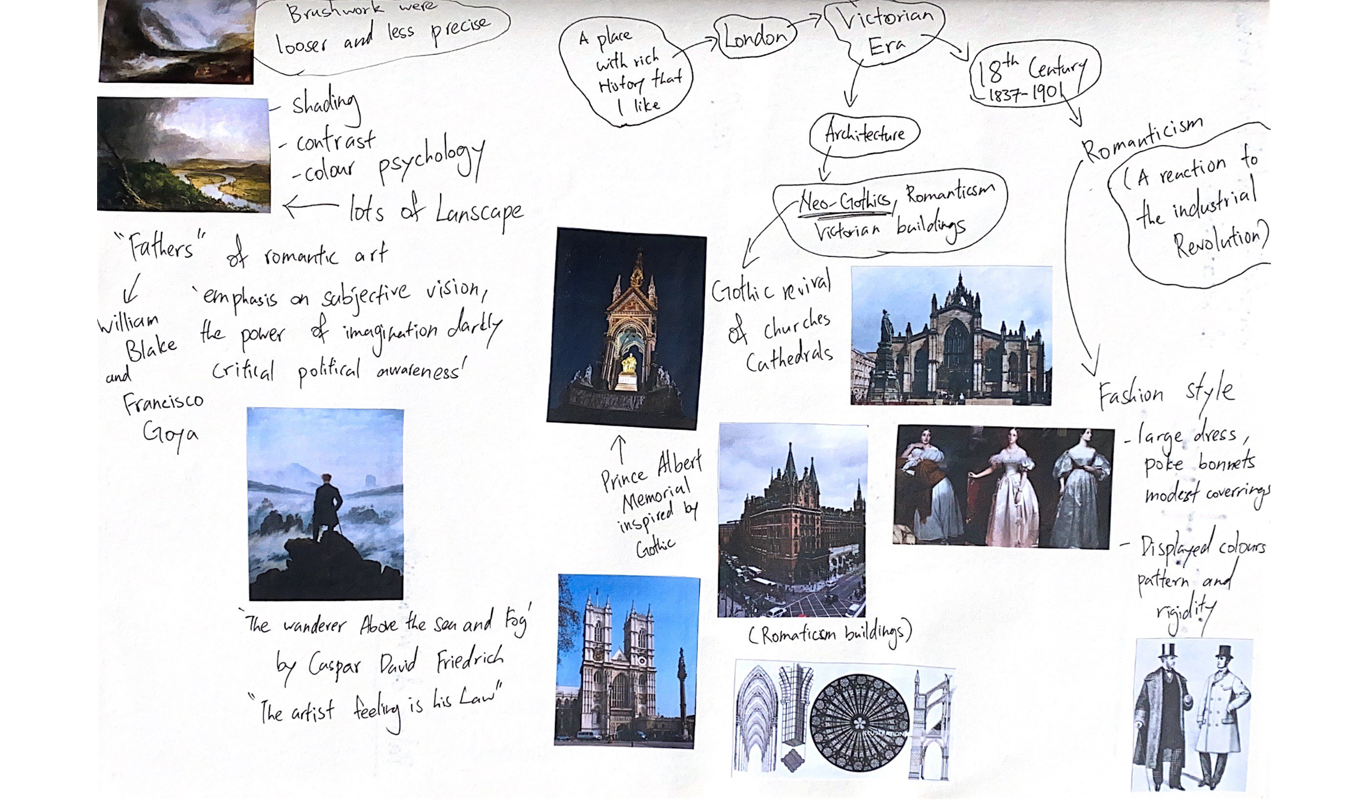 Brushwork were
looser and less precise
- shading
- contrast
- colour psychology
lots of Lanscape
"Fathers" of romantic art
William
Blake
and
Francisco
Goya
'emphasis on subjective vision,
the power of imagination darkly
critical political awareness'
'The wanderer Above the Sea and Fog'
by Caspar David Friedrich
"The artist feeling is his Law"
A place
with rich
History that
I like
London
Victorian
Era
18th Century
1837-1901
Architecture
Neo-Gothics, Romanticsm
Victorian buildings
Gothic revival
of churches
Cathedrals
Prince Albert
Memorial
inspired by
Gothic
(Romaticsm buildings)
Romanticism
(A reaction to
the industrial
Revolution)
Fashion style
- large dress,
poke bonnets
modest coverrings
- Displayed colours
pattern and
rigidity